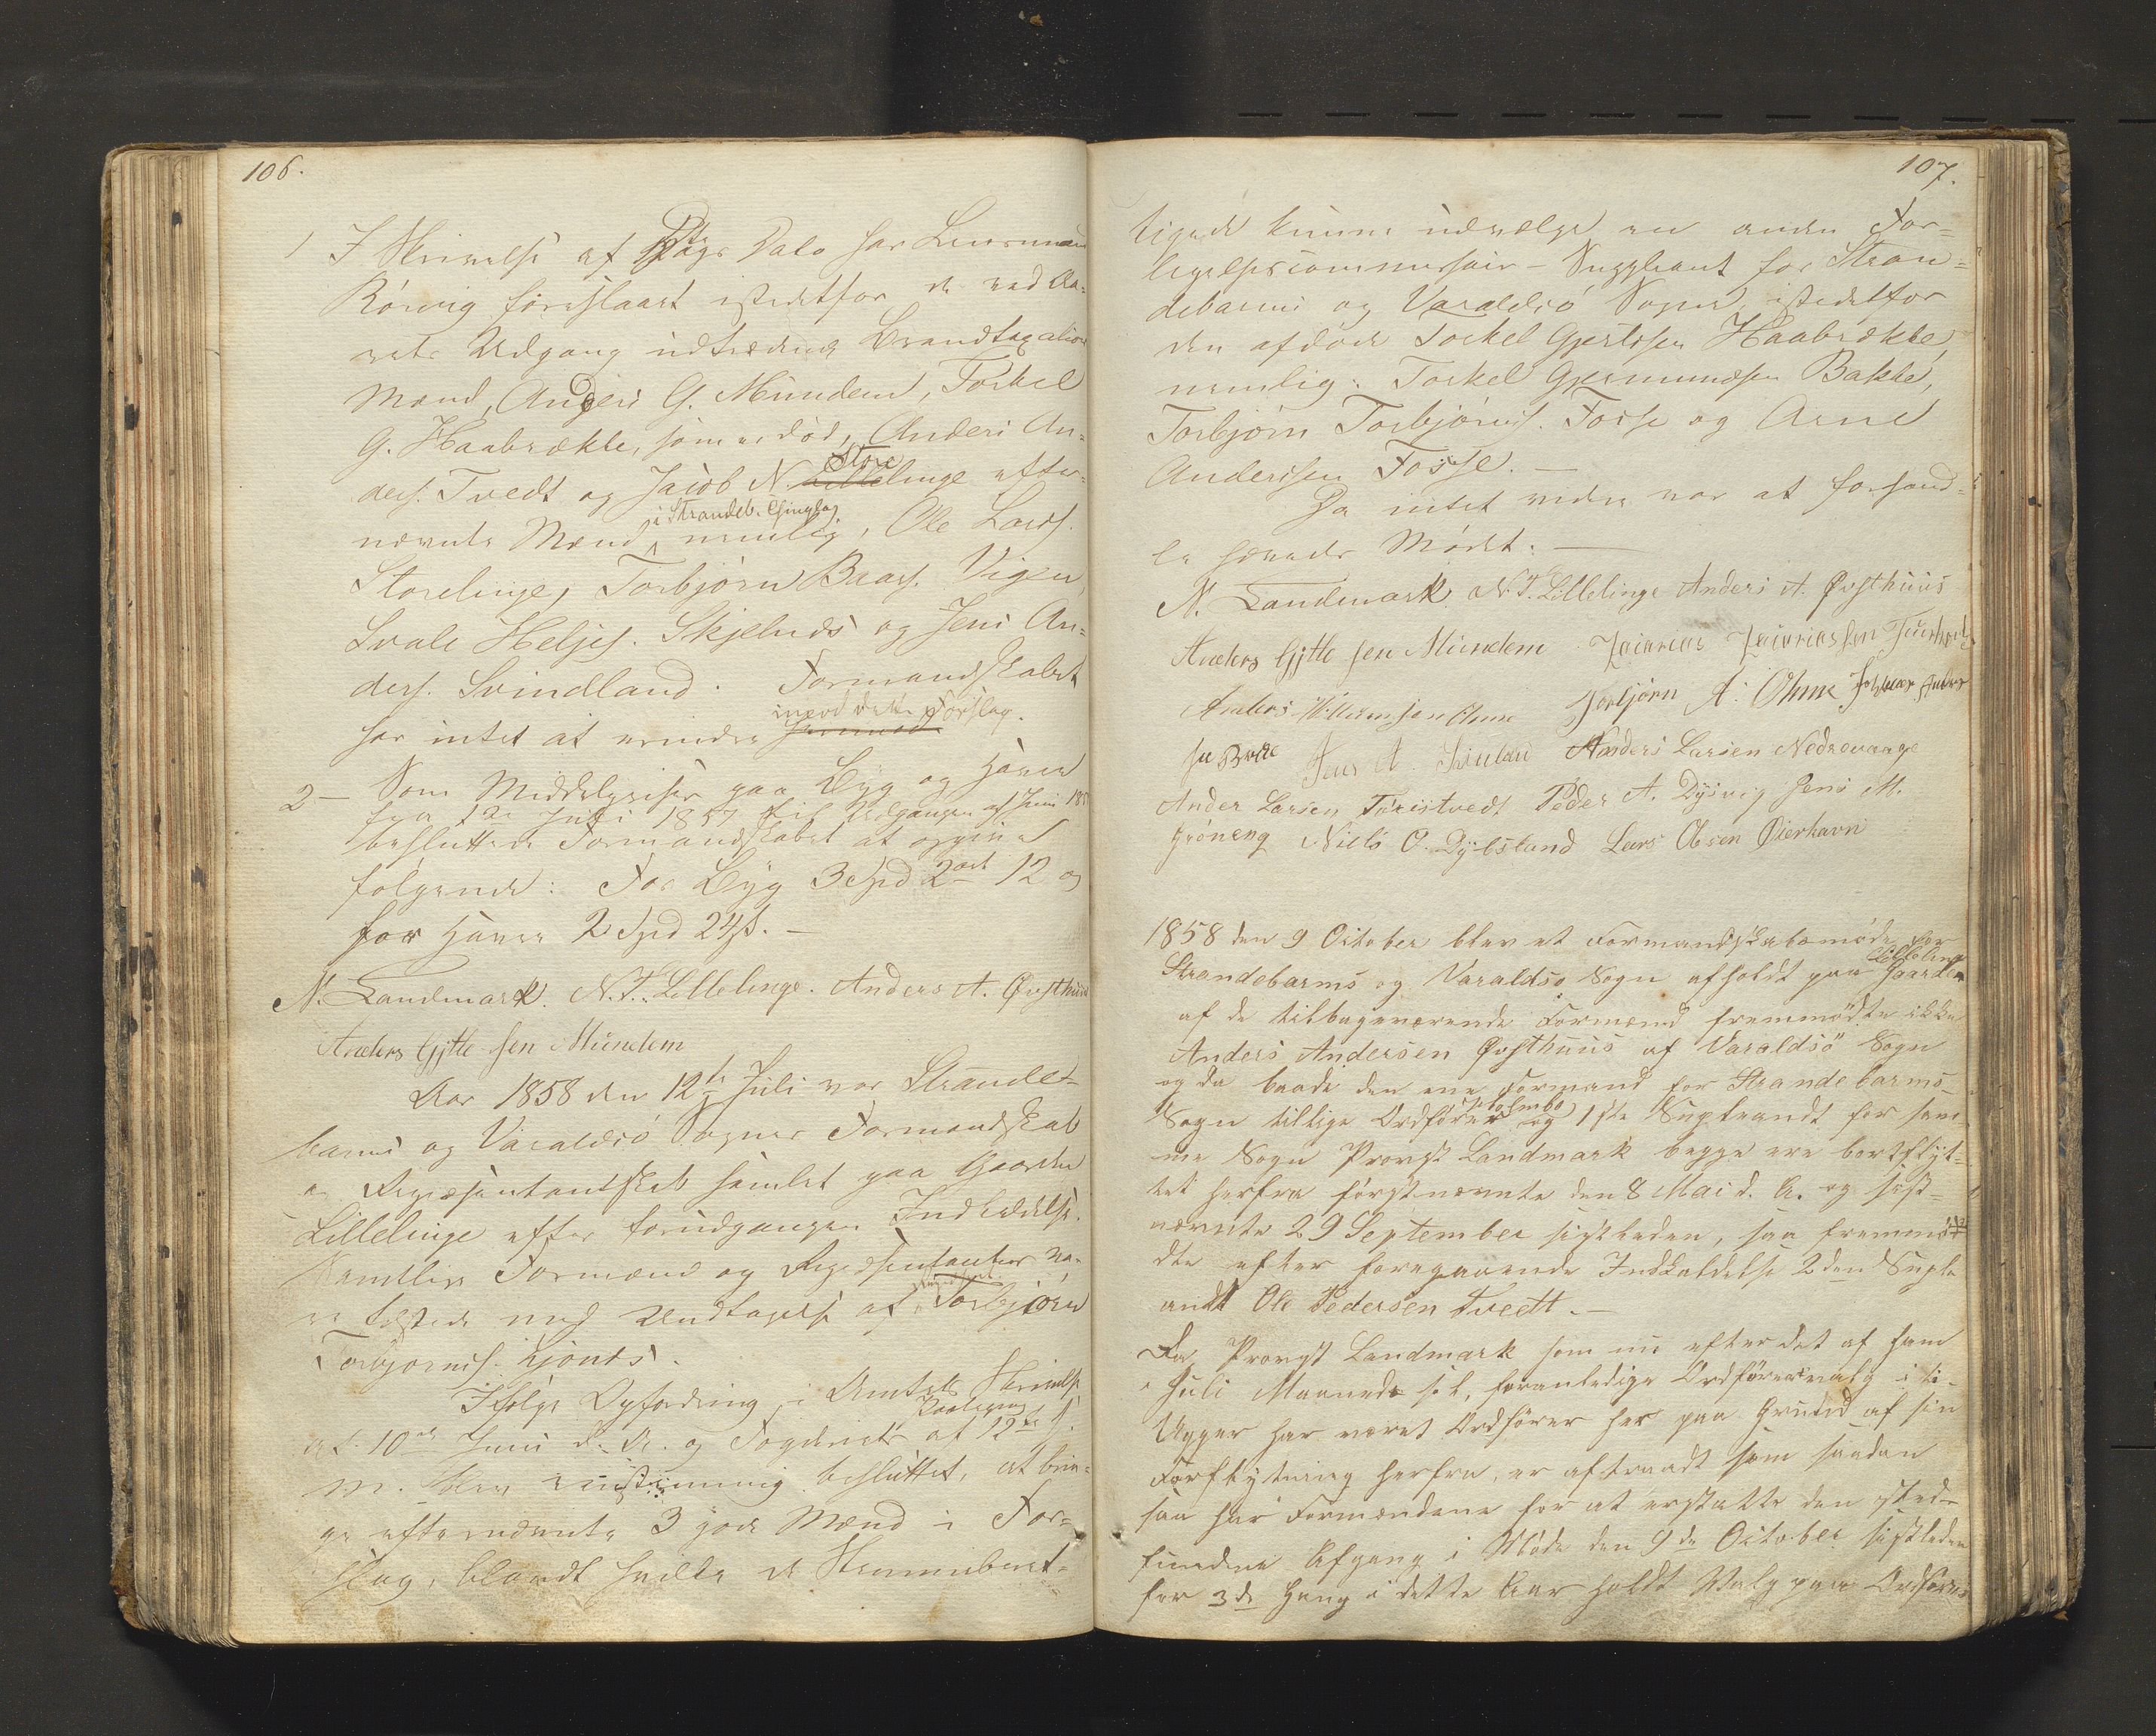 106.
1 I Skrivelse af Dags Dato har Lensmand
Rörvig foreslaaet istedetfor de ved Aa-
rets Udgang udtrædende Brandtaxations
Mænd, Anders G. Mundem, Torkel
G. Haabrække, som er død, Anders An-
ders. Tvedt og Jacob N. Store Lillelinge efter-
nævnte Mænd i Strandeb. Thinglag nemlig, Ole Lars.
Storelinge, Torbjörn Baars. Vigen
Svale Heljes. Skjelnes og Jens An-
ders. Svindland. Formandskabet
har intet at erindre imod dette Forslag.
2 - Som Middelpriser paa Byg og Havre
fra 1de Juli 1857 til Udgangen af Juni 185
besluttede Formandskabet at opgive
følgende: For Byg 3 Spd 2 ort 12 og
for Havre 2 Spd 24 s. -
N. Landmark. N.T. Lillelinge. Anders A. Øvsthuus
Anders Gjttesen Mundem
Aar 1858 den 12te Juli var Strande-
barms og Varaldsö Sognes Formandskab
og Repræsentantskab samlet paa Gaarden
Lillelinge efter forudgangen Indkaldelse.
Samtlige Formænd og Repræsentanter va-
re tilstede med Undtagelse af Torbjörn
Torbjörns. Kjönes.
Ifölge Opfordring i Amtets Skrivelse
af 10de Juni d. A. og Fogderiets Paategning af 12te s.
M. blev eenstemmig besluttet, at brin-
ge efternævnte 3 gode Mænd i For-
slag, blandt hvilke de Stemmeberet-
107.
tigede kunne udvælge en anden For-
ligelsescommissair-Suppleant for Stran-
debarms og Varaldsö Sogne, istedetfor
den afdöde Torkel Gjertsen Haabrække,
nemlig: Torkel Gjermundsen Bakke,
Torbjörn Torbjörns. Fosse og Arne
Anderssen Fosse. -
Da intet videre var at forhand-
le hævedes Mödet. -
N. Landmark N.T. Lillelinge Anders A. Øvsthuus
Anders Gjttesen Mundem Zacarias Zacariassen
Anders Villumsen Ohme Torbjörn A. Ohme
Jens A. Anders Larsen Nedrevaage
Ander Larsen Peder A. Dysvig Jens M.
Gröneng Niels O. Dybsland Lars Olsen Øierhavn
1858 den 9 October blev et Formandskabsmöde for
Strandebarms og Varaldsö Sogn afholdt paa Gaarden Lillelinge
af de tilbageværende Formænd fremmödte ikke
Anders Andersen Øvsthuus af Varaldsö Sogn
og da baade den ene Formand for Strandebarms
Sogn tillige Ordförer og 1ste Supleandt for sam-
me Sogn Provst Landmark begge ere bortflyt-
tet herfra förstnævnte den 8 Mai d. A. og sist-
nævnte 29 September sistleden, saa fremmö-
dte efter foregaaende Indkaldelse 2den Suple
andt Ole Pedersen Tvedt. -
Da Provst Landmark som nu efter det af ham
i Juli Maaned s. l. foranledige Ordförervalg i 11
Uger har været Ordförer her paa Grund af sin
Forflytning herfra, er aftraadt som saadan
saa har Formændene for at erstatte den sted-
fundne Afgang i Möde den 9de October sistleden
for 3de Gang i dette Aar holdt Valg paa Ordförer